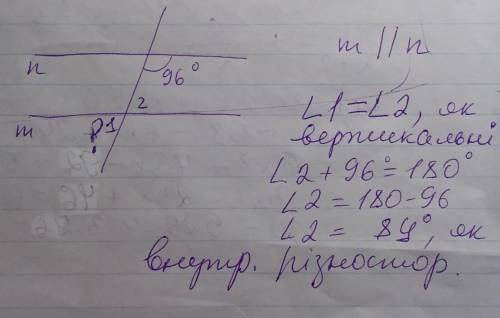 m || n
n
96°
2
m
? 1
∠1=∠2, як
вертикальні
∠2 + 96° = 180°
∠2 = 180 - 96
∠2 = 84°, як
внутр. різностор.